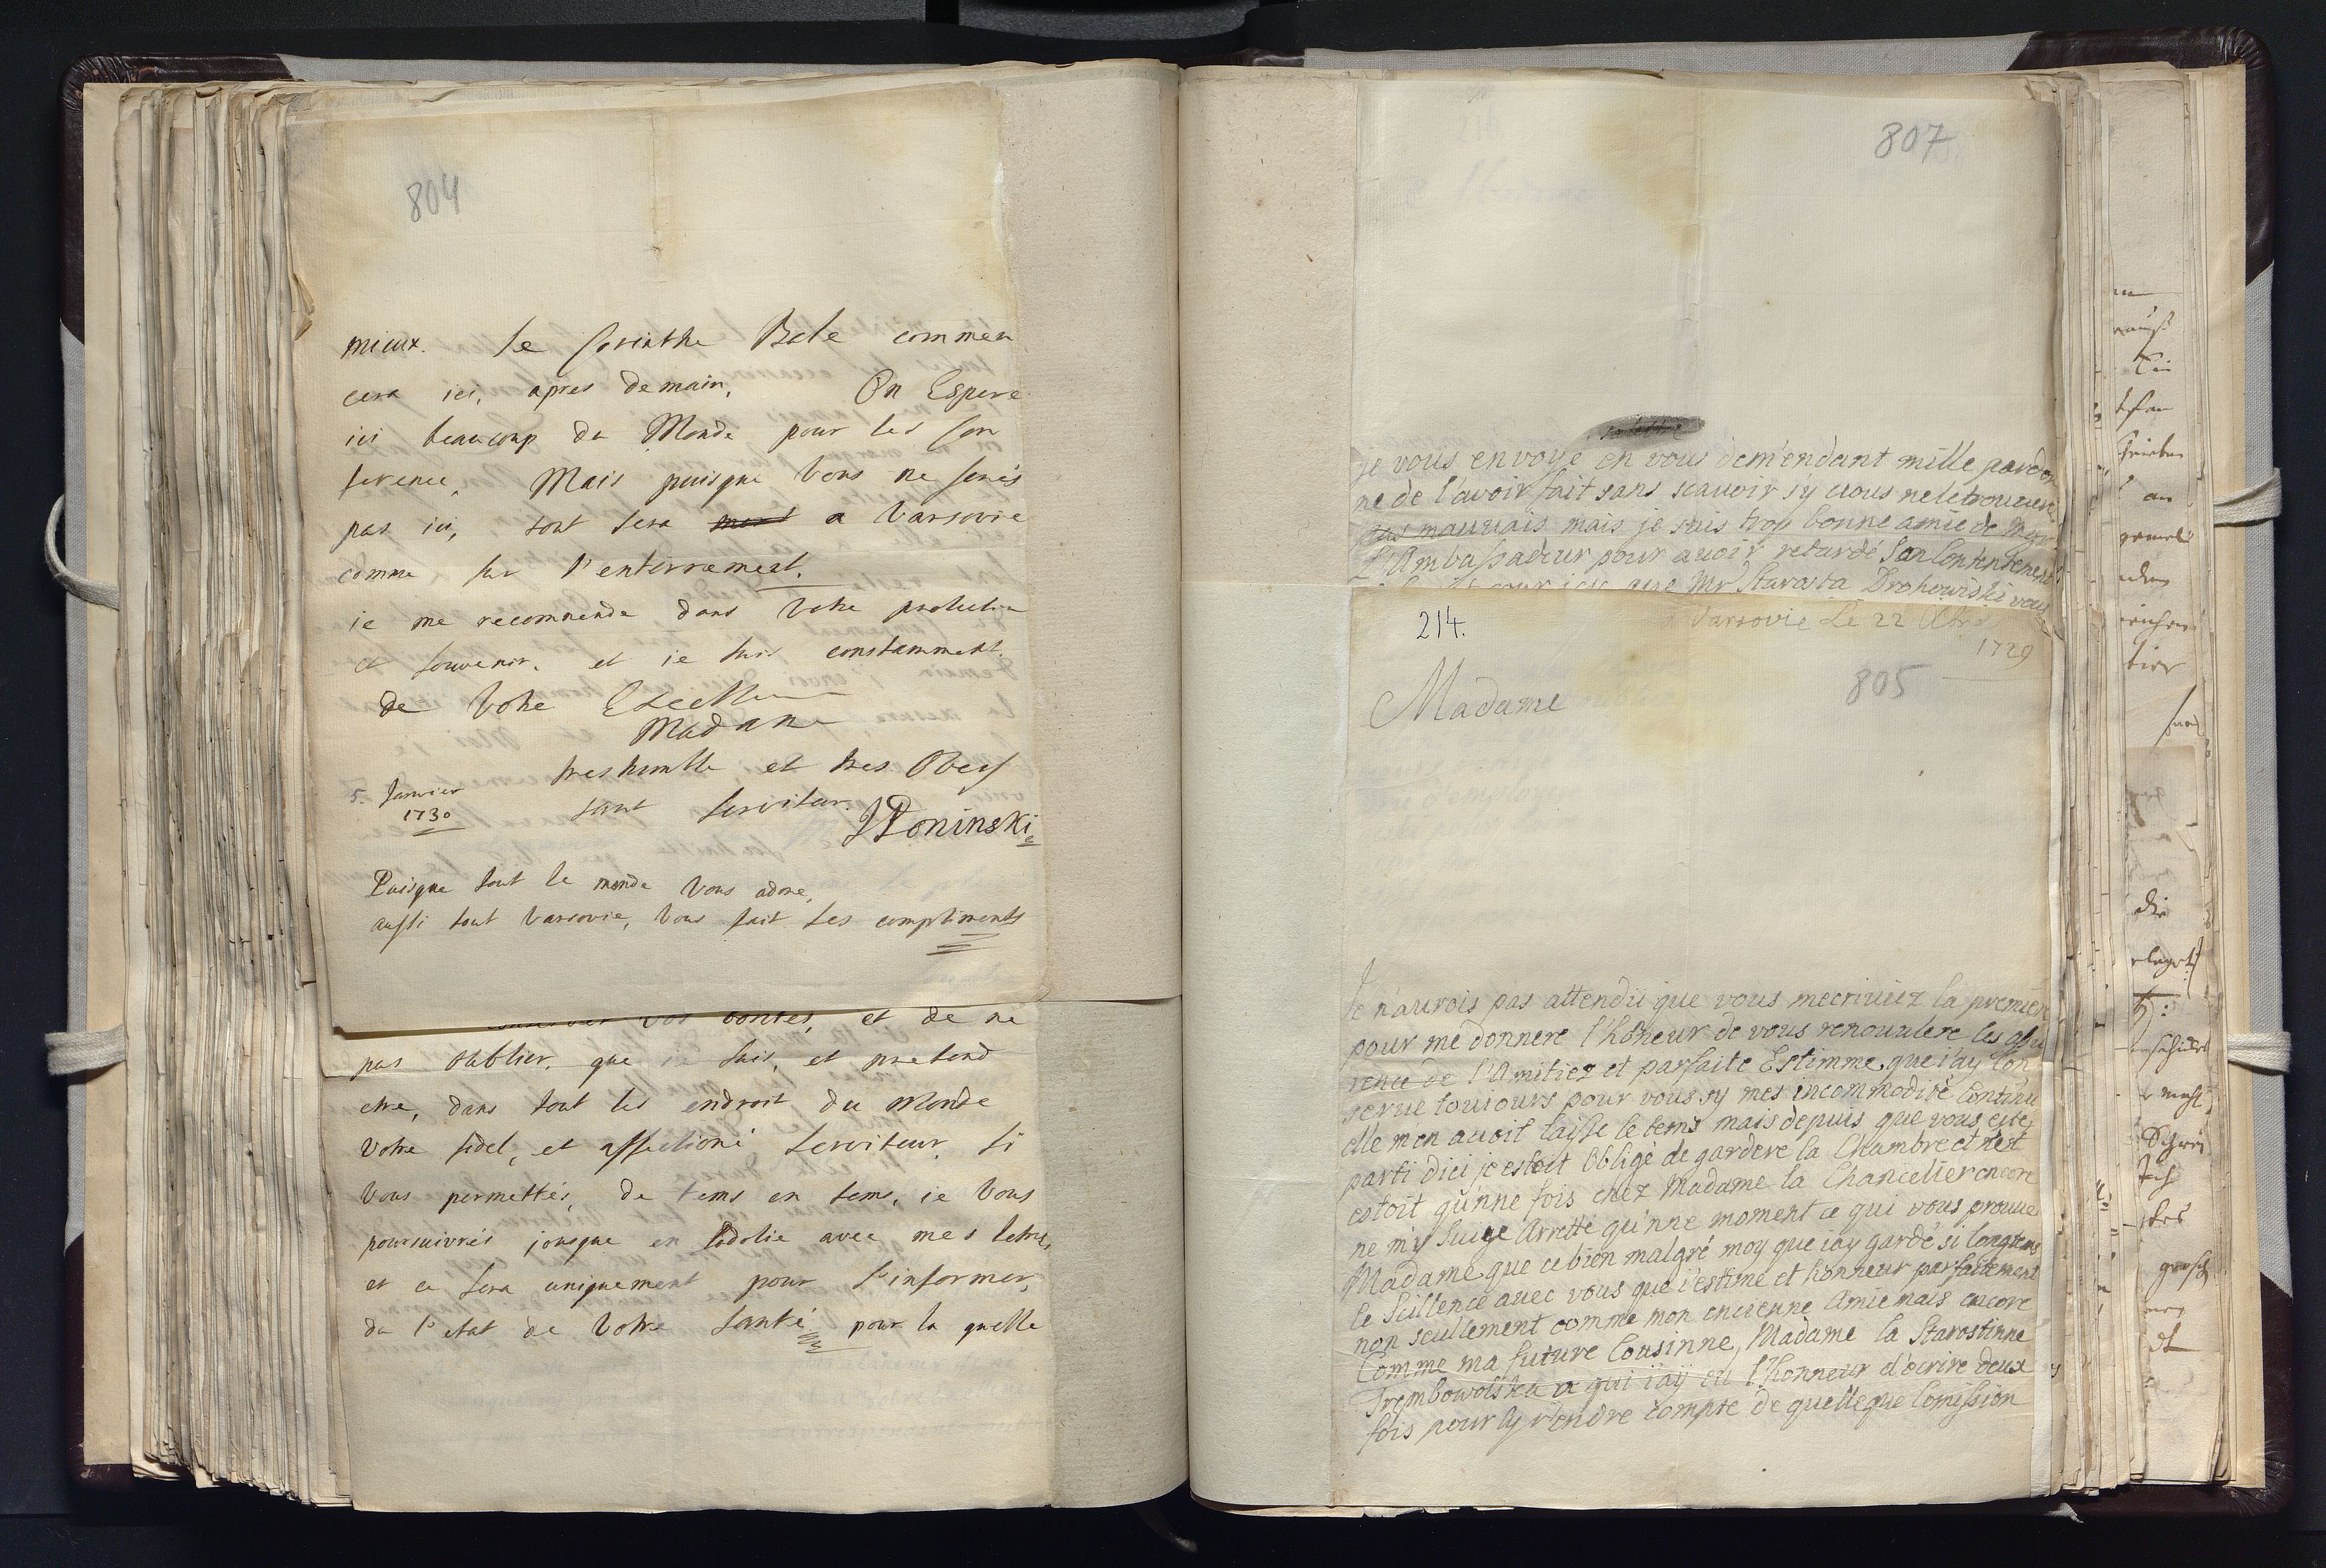 804
mieux. Le Corinthe Bale commen
cera ici, apres demain. On Espere
ici beaucoup du Monde pour les Con
ference. Mais puisque Vous ne serés
pas ici, tout sera a Varsovie
comme sur l'enterrement.
ie me recommende dans Votre protection
et souvenir. et ie suis constamment.
de Votre Excellence
Madame
tres humble et tres Obeis
sant serviteur.
5. Janvier
1730
JPoninski
Puisque tout le monde Vous adore,
aussi tout Varsovie, Vous fait ses compliments
vos bontes, et de ne
pas oublier, que ie suis, et pretend
etre, dans tout les endroit du Monde
Votre fidel, et affectioné serviteur. Si
Vous permettés, de tems en tems, ie Vous
poursuivrés jousque en Podolie avec mes letres,
et ce sera uniquement pour s'informer,
de l'etat de Votre santé pour la quelle
807
sa lettre
je vous envoye en vous dem'endant mille pardon
ne de l'avoir fait sans scauoir sy uous neletrouuere
pas mauuais mais je suis trop bonne amie de
L'Ambassadeur pour auoir retardé Son Contentement
que Mr Starosta Drohowiski vous
214.
Varsovie Le 22 Xbre
1729
805
Madame
Je n'aurois pas attendü que vous mecriuiez la premiere
pour me donnere l'honeur de vous renouulere les assu
rence de l'Amitiez et parfaite Estimme que i'ay Con
serue touiours pour vous sy mes incommodité Continu
elle m'en auoit laisse le tems mais depuis que vous este
parti dici je estoit Obligé de gardere la Chambre et n'est
estoit qu'nne fois chez Madame la Chancelier encore
ne m'y suije Arretté qu'nne moment ce qui vous prouue
Madame que ce bien malgré moy que iay gardé si longtems
le Scillence auec vous que i'estime et honneur parfaitement
non seullement comme mon encienne Amie mais encore
Comme ma future Cousinne, Madame la Starostinne
Trembowolska a qui i'aÿ eu l'honneur d'ecrire deux
fois pour ly r'endre compte de quelleque Comission
an
die